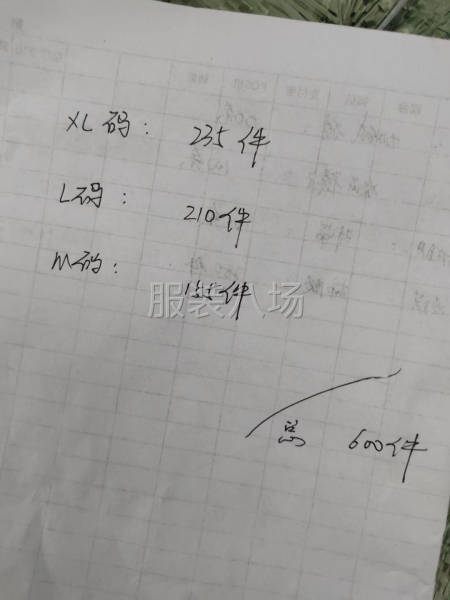 XL码: 235件
L码: 210件
M码: 155件
服装八场
总 600件